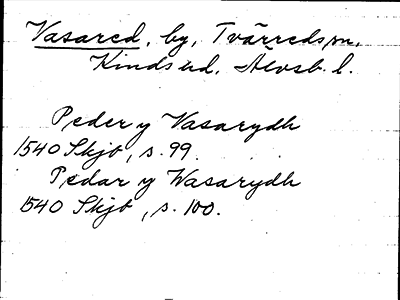 Vasared, by, Tvärreds sn,
Kinds hd, Älvsb. l.
Peder y Vasarydh
1540 Skjb, s. 99.
Pedar y Wasarydh
1540 Skjb, s. 100.